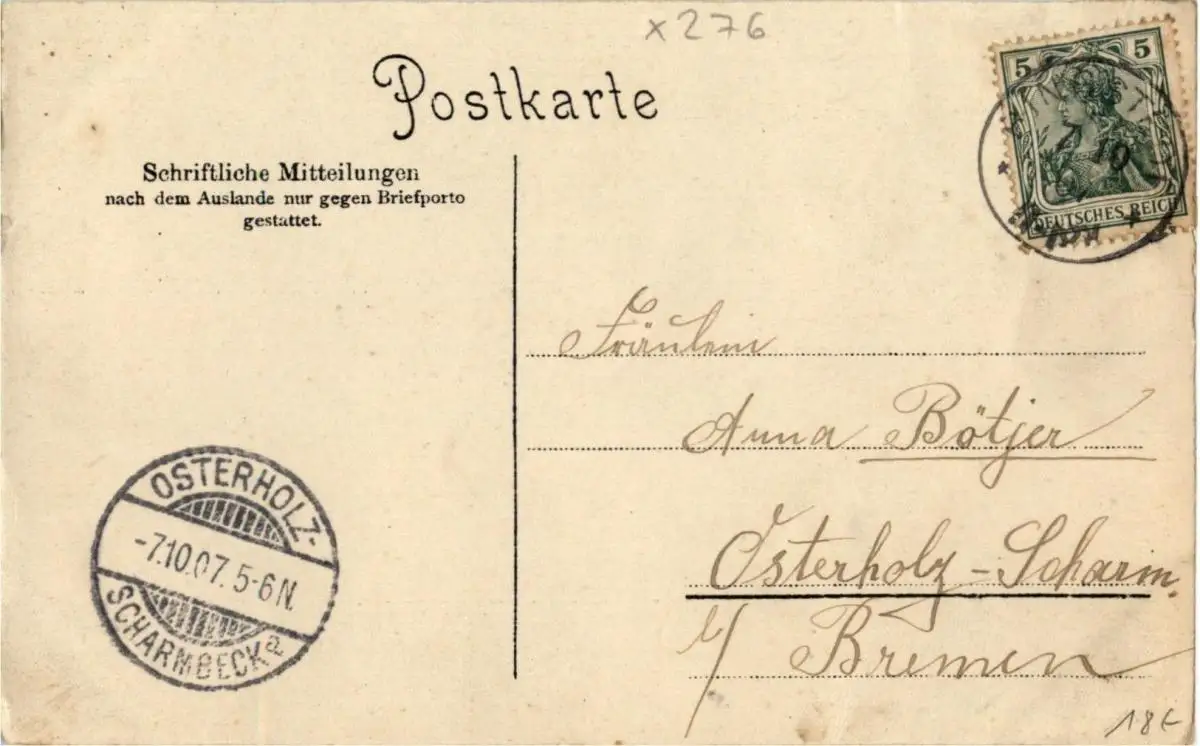 x276
Postkarte
5 5
DEUTSCHES REICH
Schriftliche Mitteilungen
nach dem Auslande nur gegen Briefporto
gestattet.
Fräulein
Anna Bötjer
Osterholz-Scharm
b/ Bremen
OSTERHOLZ-
-7.10.07. 5-6 N.
SCHARMBECK a
18€